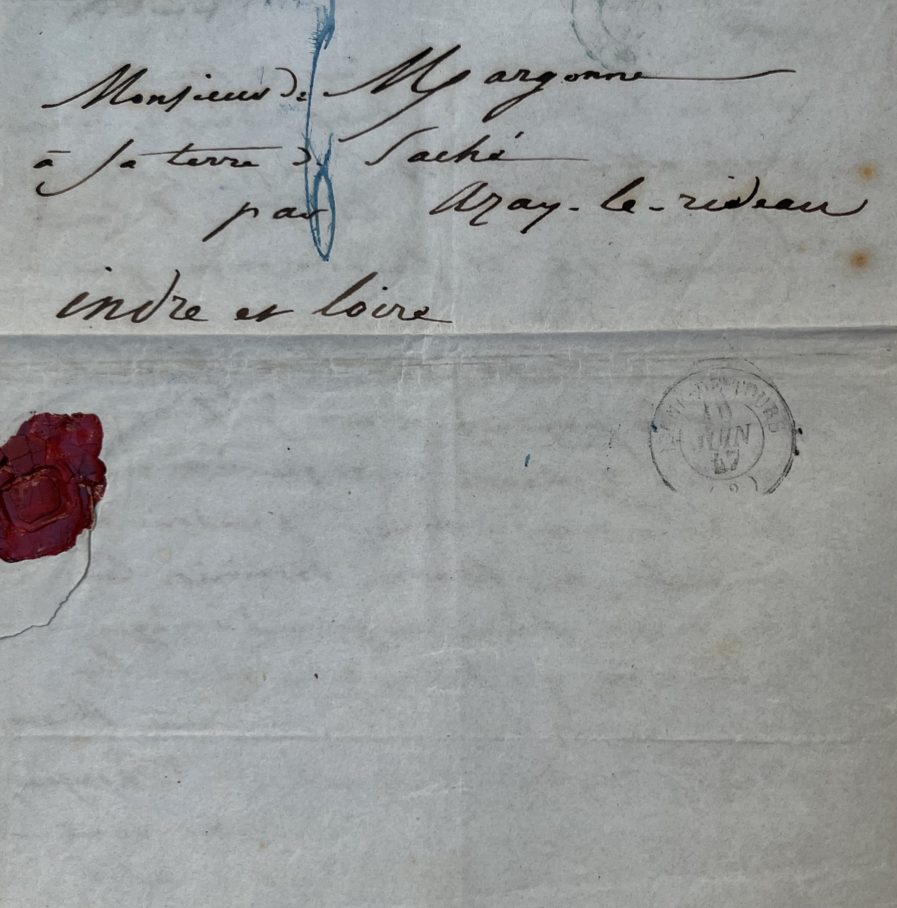 Monsieur de Margonne
à sa terre de Saché
par Azay-le-rideau
indre et loire
DE TOURS
10
JUIN
47